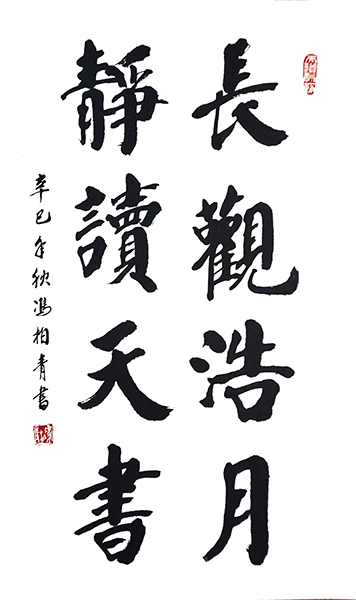 長觀浩月
靜讀天書
辛巳年秋馮柏青書